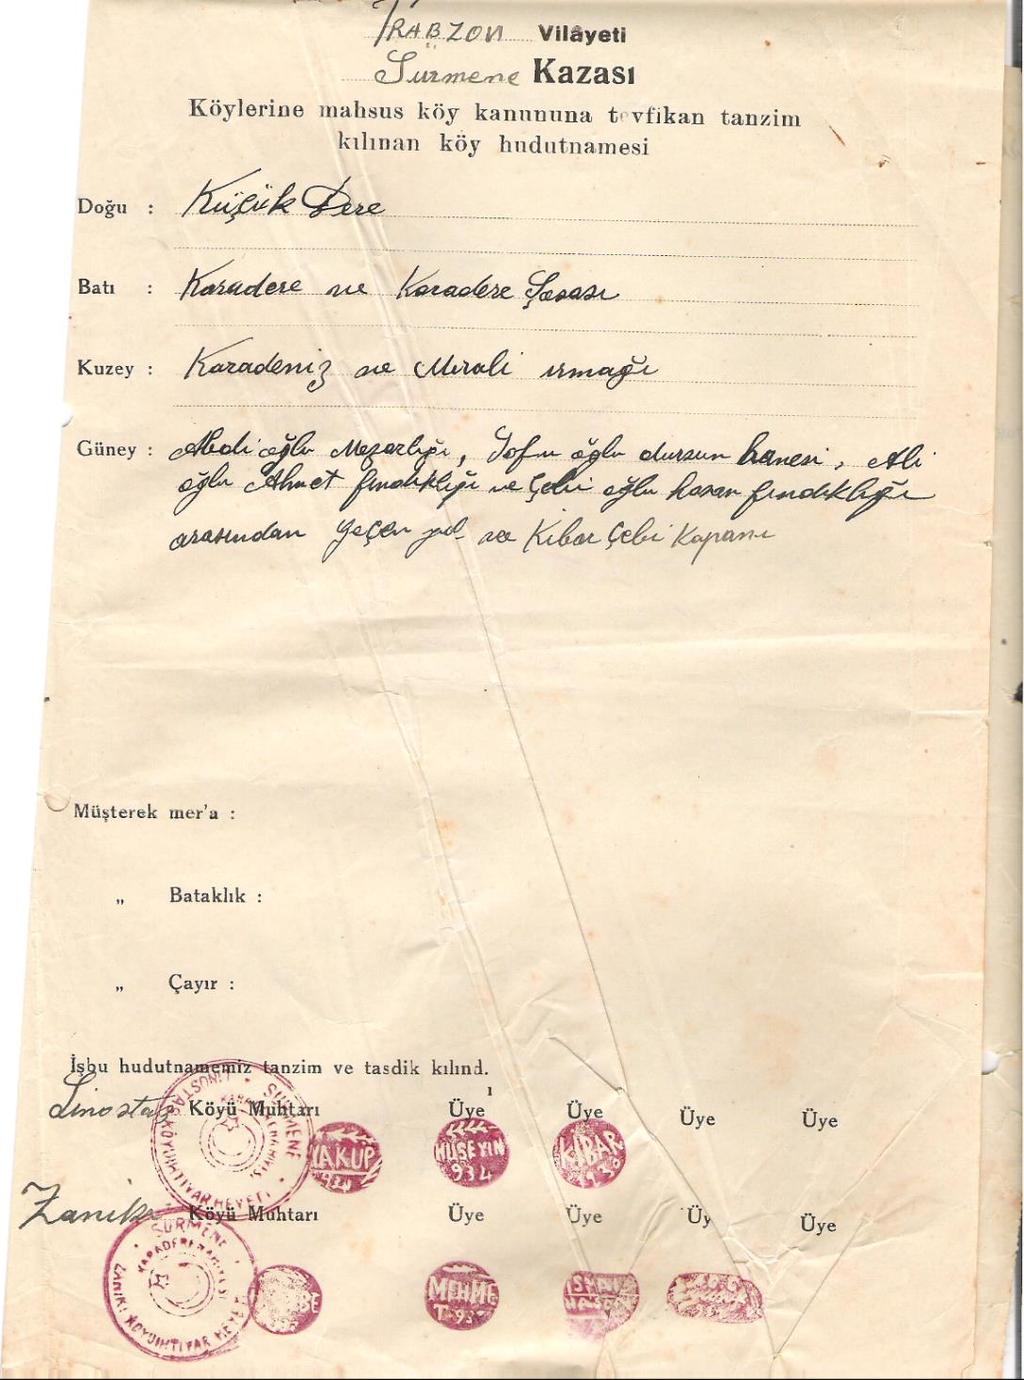 TRABZON Vilâyeti
Sürmene Kazası
Köylerine mahsus köy kanununa tevfikan tanzim
kılınan köy hudutnamesi
Doğu : Küçük Dere
Batı : Karadere ve Karadere Şosası
Kuzey : Karadeniz ve Mırali ırmağı
Güney : Abdi oğlu Mezarlığı, oğlu dursun hanesi, Ali
oğlu Ahmet fındıklığı ve Çebi oğlu hasan fındıklığı
arasından geçen yol ve Kibar Çebi Kapanı
Müşterek mer'a :
„ Bataklık :
„ Çayır :
İşbu hudutnamemiz tanzim ve tasdik kılınd.
ı
Zinostaş Köyü Muhtarı Üye Üye Üye Üye
SÜRMENE
ZİNOSTAŞ KÖYÜ İHTİYAR HEYETİ
YAKUP
HÜSEYİN
934
KİBAR
Zaniki Köyü Muhtarı Üye Üye Üy Üye
SÜRMENE
KARADERE NAHİYESİ
ZANİKİ KÖYÜ İHTİYAR HEYETİ
MEHME
T
HASAN